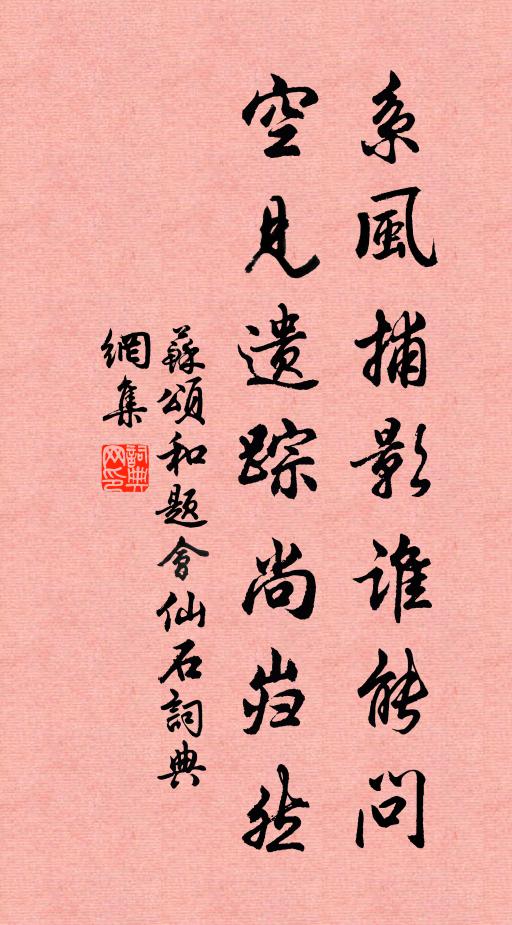 系風捕影誰能問
空見遺踪尚岿然
蘇頌和題會仙石詞典
網集
詞典
网印